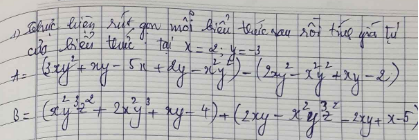 1) Thực hiện rút gọn mỗi biểu thức sau rồi tính giá trị
của biểu thức tại x = 2; y = -3
A = (3xy² + xy - 5x + 2y - x²y²) - (2xy² - x²y² + xy - 2)
B = (x²y³z² + 2x²y³ + xy - 4) + (2xy - x²y³z² - 2xy + x - 5)